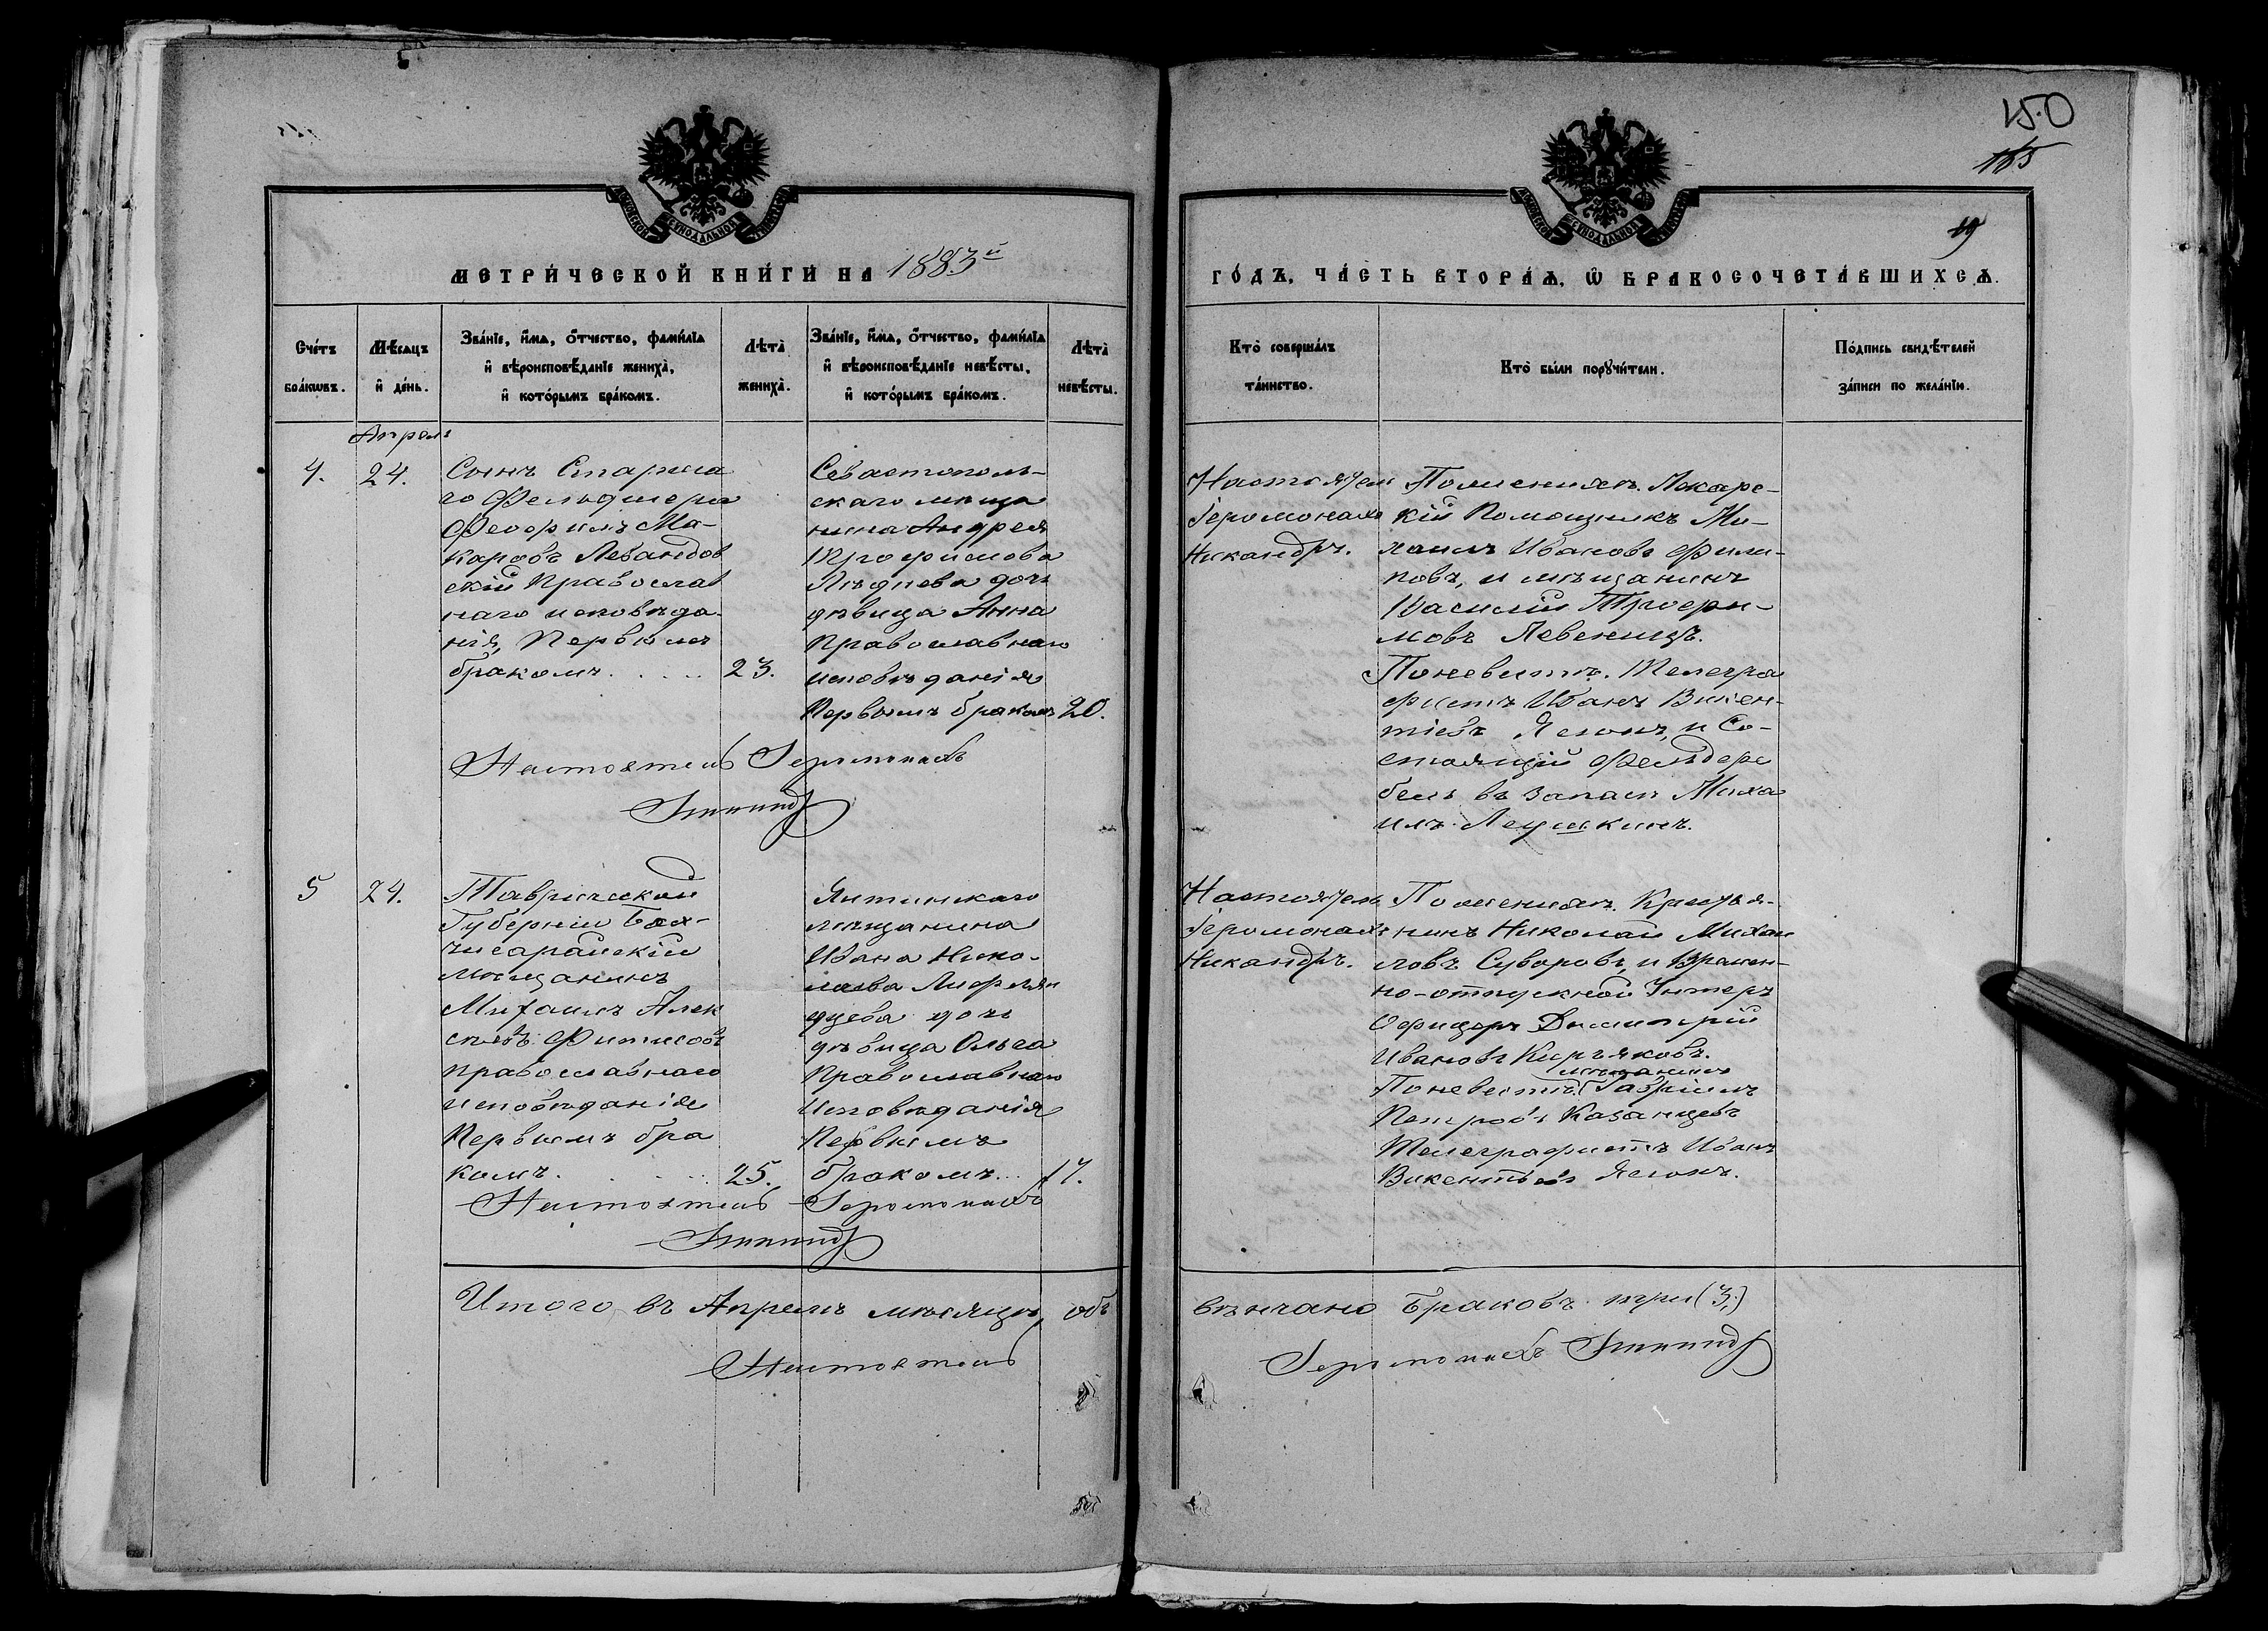 150
165
19
МЕТРИ́ЧЕСКОЙ КНИ́ГИ НА 1883й
ГО́ДЪ, ЧА́СТЬ ВТОРА́Ѧ, Ѽ БРАКОСОЧЕТА́ВШИХСѦ.
Сче́тъ бра́кѡвъ.
Мѣ́сѧцъ и҆ де́нь.
Зва́нїе, и҆́мѧ, ѻ҆́тчество, фами́лїа
и҆ вѣроисповѣ́данїе жениха̀,
и҆ кото́рымъ бра́комъ.
Лѣта̀ жениха̀.
Зва́нїе, и҆́мѧ, ѻ҆́тчество, фами́лїа
и҆ вѣроисповѣ́данїе невѣ́сты,
и҆ кото́рымъ бра́комъ.
Лѣта̀ невѣ́сты.
Кто̀ соверша́лъ
та́инство.
Кто̀ бы́ли порꙋчи́тели.
По́дпись свидѣ́телей
за́писи по жела́нїю.
Апрель
4.
24.
Сынъ Старша
го Фельдшера
Феофилъ Ма-
каровъ Левандов
скій Православ
наго исповѣда-
нія, Первымъ
бракомъ.
23.
Севастополь-
скаго мѣща
нина Андрея
Трофимова
дочь
дѣвица Анна
Православнаго
исповѣданія
Первымъ бракомъ
20.
Настоятель
Іеромонахъ
Никандръ.
По женихѣ. Лекарс-
кій Помощникъ Ми-
хаилъ Ивановъ Фили-
повъ, и мѣщанинъ
Василій Трофи-
мовъ
По невѣстѣ. Телегра
фистъ Иванъ Викен-
тіевъ и Со-
стоящій Фельдфе
бель въ запасѣ Миха
илъ
Настоятель Іеромонахъ
Никандръ
5
24.
Таврической
Губерніи Бах-
чисарайскій
мѣщанинъ
Михаилъ Алек
сѣевъ Фитисовъ
православнаго
исповѣданія
Первымъ бра
комъ.
25.
Ялтинскаго
мѣщанина
Ивана Нико-
лаева
дочь
дѣвица Ольга
Православнаго
Исповѣданія
Первымъ
бракомъ
17.
Настоятель
Іеромонахъ
Никандръ.
По женихѣ. Крестья-
нинъ Николай Михаи
ловъ Суворовъ, и Времен-
но-отпускной Унтеръ
Офицеръ Димитрій
Ивановъ Кирьяковъ.
мѣщанинъ
По невѣстѣ. Гавріилъ
Петровъ Казанцевъ
Телеграфистъ Иванъ
Викентьевъ
Настоятель Іеромонахъ
Никандръ
Итого въ Апрелѣ мѣсяцѣ, об
вѣнчано Браковъ три (3;)
Настоятель
Іеромонахъ Никандръ